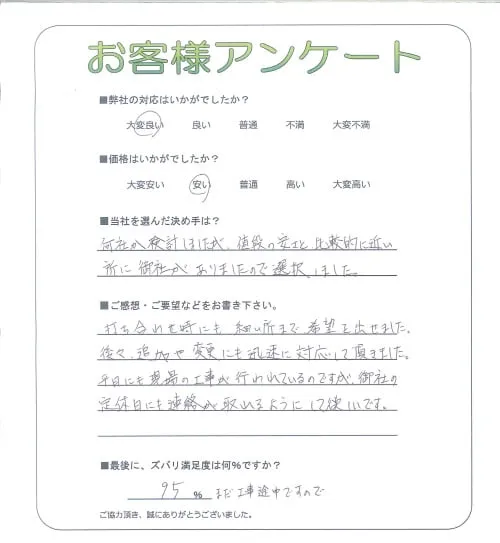 お客様アンケート
■弊社の対応はいかがでしたか？
大変良い 良い 普通 不満 大変不満
■価格はいかがでしたか？
大変安い 安い 普通 高い 大変高い
■当社を選んだ決め手は？
何社か検討しましたが、値段の安さと、比較的に近い
所に御社がありましたので選択しました。
■ご感想・ご要望などをお書き下さい。
打ち合わせ時にも細い所まで希望を出せました。
後々、追加や変更にも迅速に対応して頂きました。
平日にも現場の工事が行われているのですが、御社の
定休日にも連絡が取れるようにして欲しいです。
■最後に、ズバリ満足度は何%ですか？
95 % まだ工事途中ですので
ご協力頂き、誠にありがとうございました。